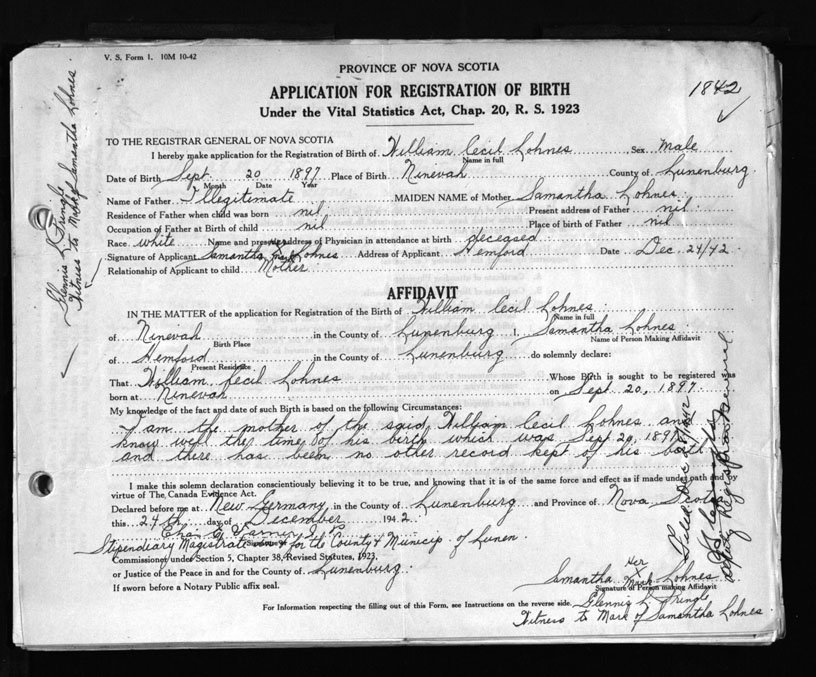 V. S. Form 1. 10M 10-42
PROVINCE OF NOVA SCOTIA
APPLICATION FOR REGISTRATION OF BIRTH
Under the Vital Statistics Act, Chap. 20, R. S. 1923
1842
TO THE REGISTRAR GENERAL OF NOVA SCOTIA
I hereby make application for the Registration of Birth of William Cecil Lohnes Sex Male
Name in full
Date of Birth Sept. 20 1897 Place of Birth Ninevah County of Lunenburg.
Month Date Year
Name of Father Illegitimate MAIDEN NAME of Mother Samantha Lohnes.
Residence of Father when child was born nil Present address of Father nil.
Occupation of Father at Birth of child nil Place of birth of Father nil
Race white Name and present address of Physician in attendance at birth deceased
Signature of Applicant Samantha Her X Mark Lohnes Address of Applicant Hemford Date Dec. 24/42.
Relationship of Applicant to child Mother
Glennis L Pringle
Witness to Mark of Samantha Lohnes.
AFFIDAVIT
IN THE MATTER of the application for Registration of the Birth of William Cecil Lohnes.
Name in full
of Ninevah in the County of Lunenburg I, Samantha Lohnes
Birth Place Name of Person Making Affidavit
of Hemford in the County of Lunenburg do solemnly declare:
Present Residence
That William Cecil Lohnes Whose Birth is sought to be registered was
born at Ninevah on Sept. 20, 1897.
My knowledge of the fact and date of such Birth is based on the following Circumstances:
I am the mother of the said William Cecil Lohnes and
know well the time of his birth which was Sept 20, 1897
and there has been no other record kept of his birth
I make this solemn declaration conscientiously believing it to be true, and knowing that it is of the same force and effect as if made under oath and by
virtue of The Canada Evidence Act.
Declared before me at New Germany in the County of Lunenburg and Province of Nova Scotia
this 24th day of December 1942.
Stipendiary Magistrate for the County Municip. of Lunen.
Commissioner under Section 5, Chapter 38, Revised Statutes, 1923,
or Justice of the Peace in and for the County of Lunenburg.
If sworn before a Notary Public affix seal.
Samantha Her X Mark Lohnes
Signature of Person making Affidavit
For Information respecting the filling out of this Form, see Instructions on the reverse side.
Glennis L Pringle
Witness to Mark of Samantha Lohnes.
Deputy Registrar General